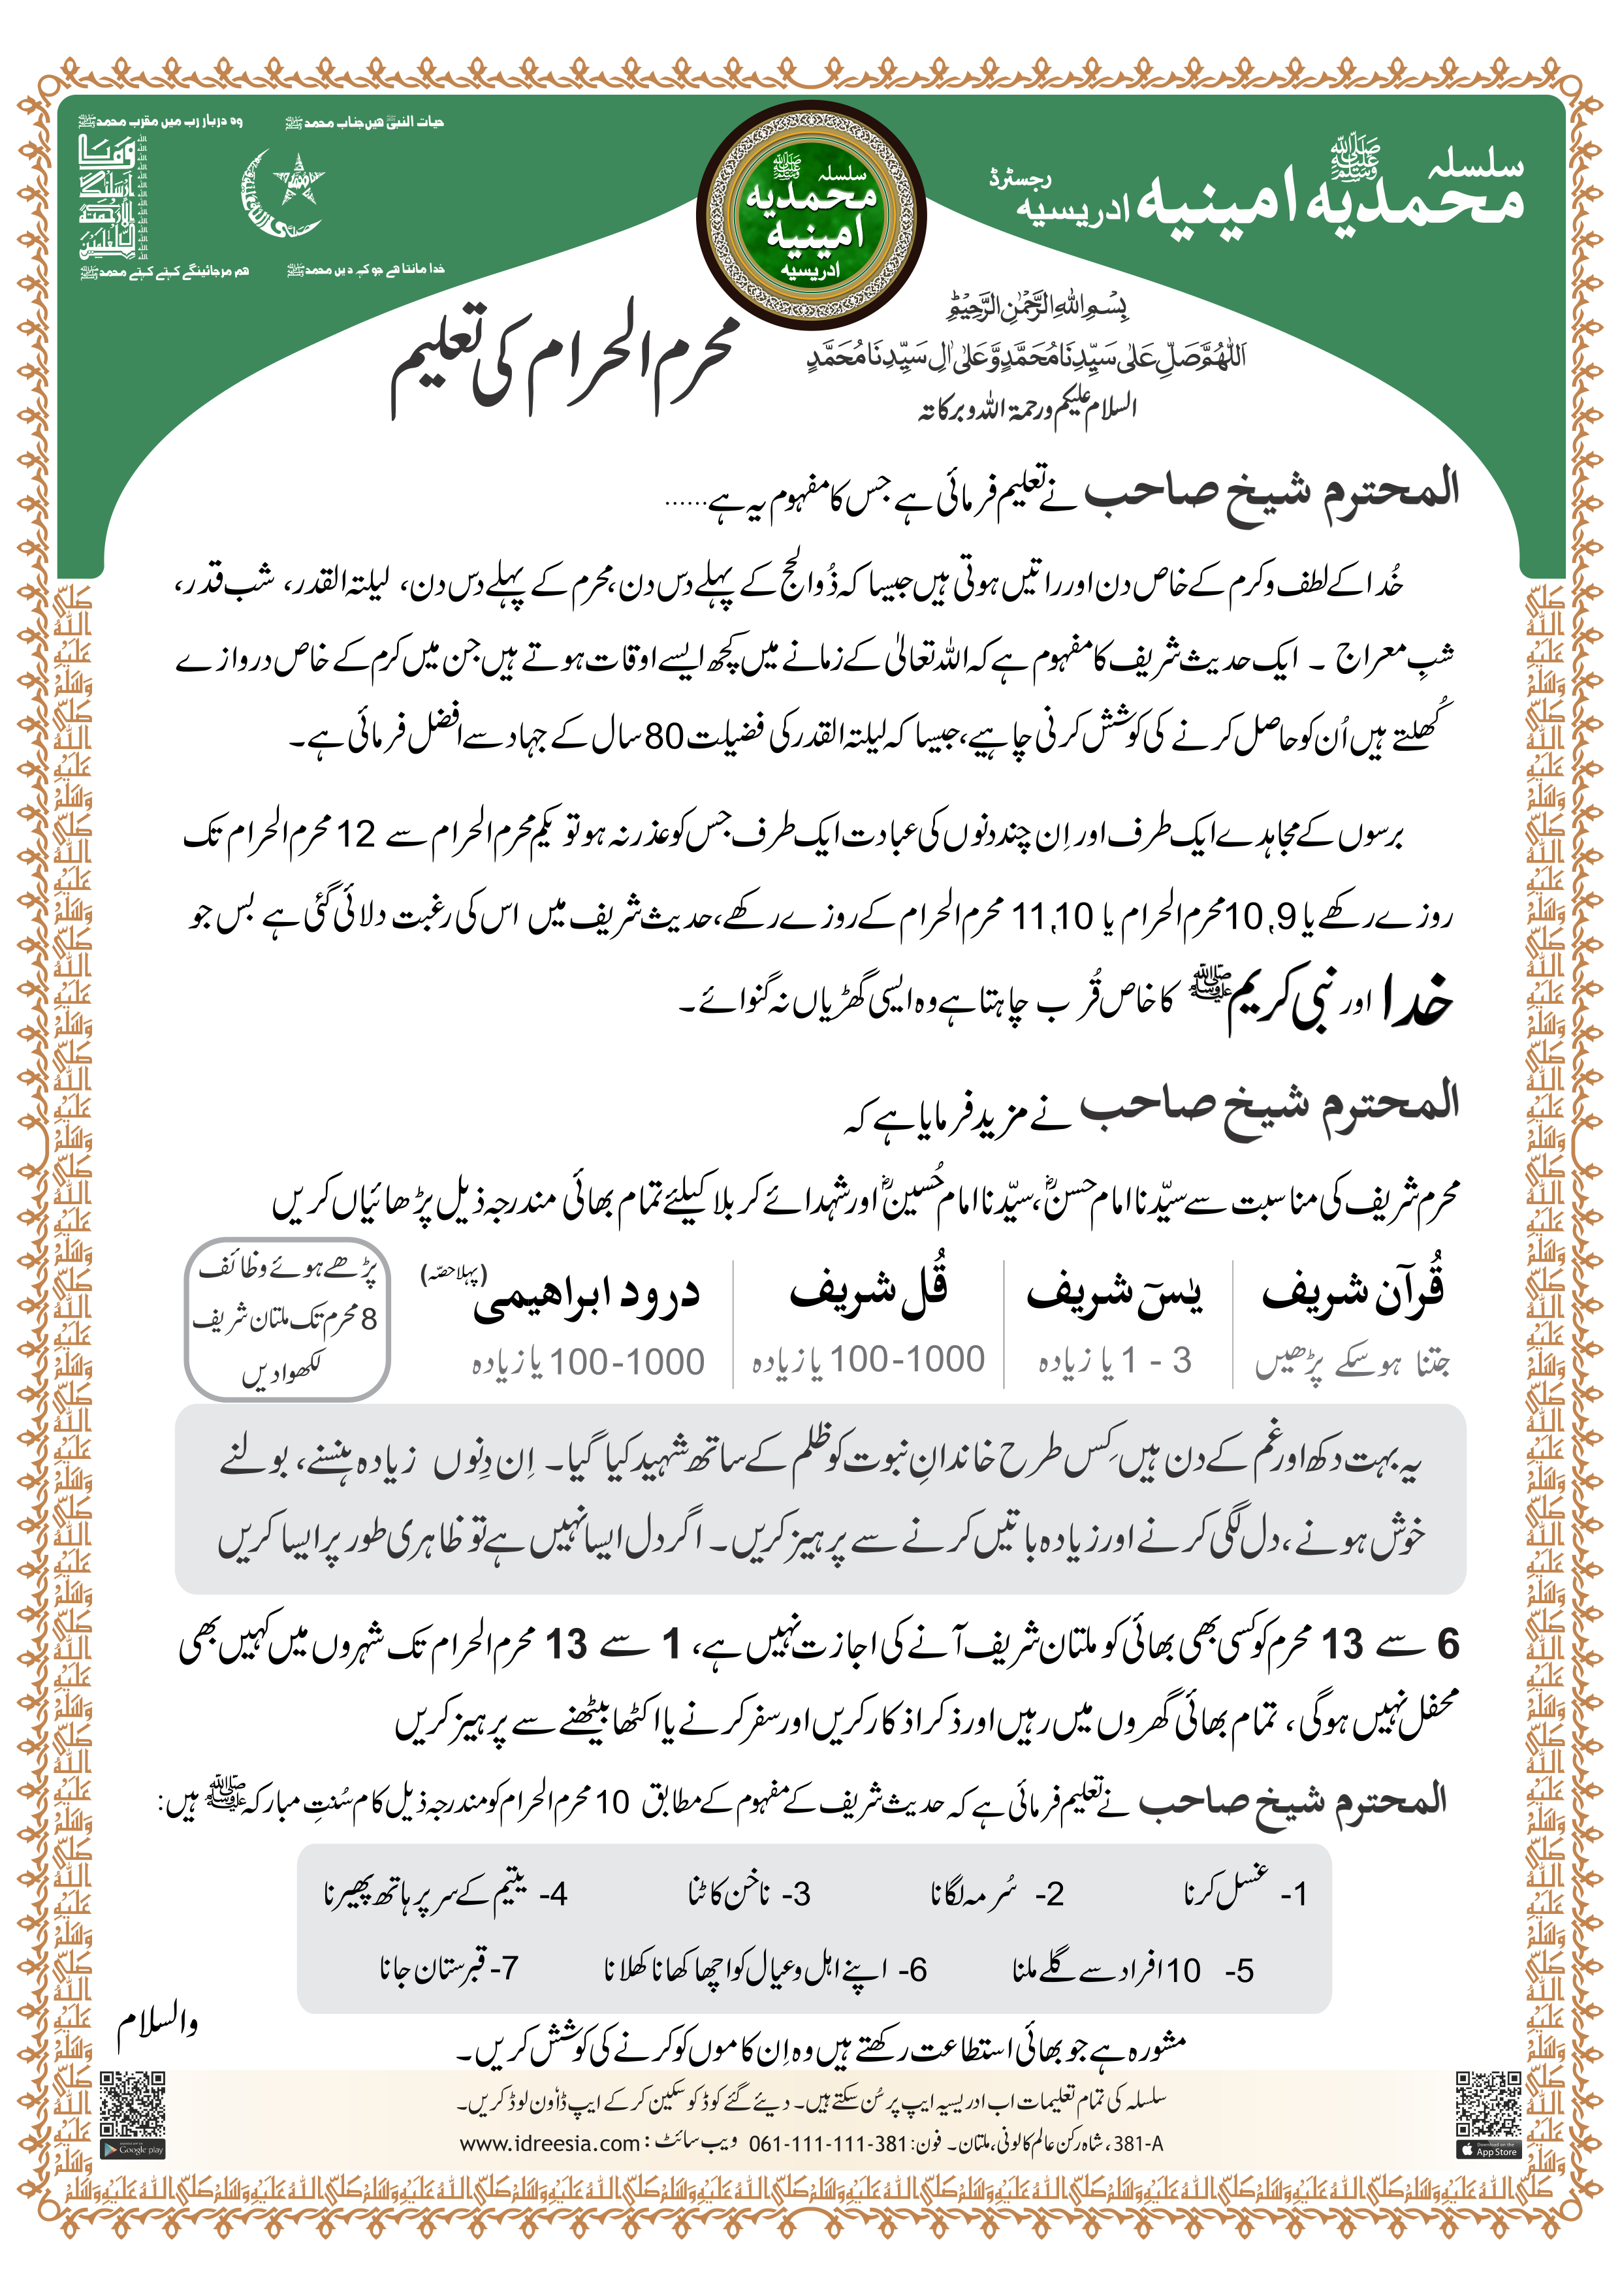 سلسلہ
محمدیہ امینیہ ادریسیہ رجسٹرڈ
ﷺ
سلسلہ
محمدیہ
امینیہ
ادریسیہ
حیات النبیؐ ہیں جناب محمد ﷺ
وہ دربار رب میں مقرب محمد ﷺ
وَمَا
أَرْسَلْنٰكَ
إِلَّا رَحْمَةً
لِّلْعٰلَمِيْنَ
خدا مانتا ہے جو کہہ دیں محمد ﷺ
ہم مر جائینگے کہتے کہتے محمد ﷺ
بِسْمِ اللهِ الرَّحْمٰنِ الرَّحِيْمِ
اَللّٰهُمَّ صَلِّ عَلٰى سَيِّدِنَا مُحَمَّدٍ وَّعَلٰى اٰلِ سَيِّدِنَا مُحَمَّدٍ
السلام علیکم ورحمۃ اللہ وبرکاتہ
محرم الحرام کی تعلیم
المحترم شیخ صاحب نے تعلیم فرمائی ہے جس کا مفہوم یہ ہے......
خُدا کے لطف و کرم کے خاص دن اور راتیں ہوتی ہیں جیسا کہ ذُوالحج کے پہلے دس دن، محرم کے پہلے دس دن، لیلتہ القدر، شب قدر،
شبِ معراج ۔ ایک حدیث شریف کا مفہوم ہے کہ اللہ تعالیٰ کے زمانے میں کچھ ایسے اوقات ہوتے ہیں جن میں کرم کے خاص دروازے
کُھلتے ہیں اُن کو حاصل کرنے کی کوشش کرنی چاہیے، جیسا کہ لیلتہ القدر کی فضیلت 80 سال کے جہاد سے افضل فرمائی ہے۔
برسوں کے مجاہدے ایک طرف اور اِن چند دنوں کی عبادت ایک طرف جس کو عذر نہ ہو تو یکم محرم الحرام سے 12 محرم الحرام تک
روزے رکھے یا 9,10 محرم الحرام یا 10,11 محرم الحرام کے روزے رکھے، حدیث شریف میں اس کی رغبت دلائی گئی ہے بس جو
خدا اور نبی کریم ﷺ کا خاص قُرب چاہتا ہے وہ ایسی گھڑیاں نہ گنوائے۔
المحترم شیخ صاحب نے مزید فرمایا ہے کہ
محرم شریف کی مناسبت سے سیّدنا امام حسنؓ، سیّدنا امام حُسینؓ اور شہدائے کربلا کیلئے تمام بھائی مندرجہ ذیل پڑھائیاں کریں
قُرآن شریف
جتنا ہو سکے پڑھیں
یٰسٓ شریف
1 - 3 یا زیادہ
قُل شریف
100-1000 یا زیادہ
درود ابراھیمی (پہلا حصّہ)
100-1000 یا زیادہ
پڑھے ہوئے وظائف
8 محرم تک ملتان شریف
لکھوا دیں
یہ بہت دکھ اور غم کے دن ہیں کِس طرح خاندانِ نبوت کو ظلم کے ساتھ شہید کیا گیا۔ اِن دِنوں زیادہ ہنسنے، بولنے
خوش ہونے، دل لگی کرنے اور زیادہ باتیں کرنے سے پرہیز کریں۔ اگر دل ایسا نہیں ہے تو ظاہری طور پر ایسا کریں
6 سے 13 محرم کو کسی بھی بھائی کو ملتان شریف آنے کی اجازت نہیں ہے، 1 سے 13 محرم الحرام تک شہروں میں کہیں بھی
محفل نہیں ہوگی، تمام بھائی گھروں میں رہیں اور ذکر اذکار کریں اور سفر کرنے یا اکٹھا بیٹھنے سے پرہیز کریں
المحترم شیخ صاحب نے تعلیم فرمائی ہے کہ حدیث شریف کے مفہوم کے مطابق 10 محرم الحرام کو مندرجہ ذیل کام سُنتِ مبارکہ ﷺ ہیں:
1- غسل کرنا 2- سُرمہ لگانا 3- ناخن کاٹنا 4- یتیم کے سر پر ہاتھ پھیرنا
5- 10 افراد سے گلے ملنا 6- اپنے اہل و عیال کو اچھا کھانا کھلانا 7- قبرستان جانا
مشورہ ہے جو بھائی استطاعت رکھتے ہیں وہ اِن کاموں کو کرنے کی کوشش کریں۔
والسلام
سلسلہ کی تمام تعلیمات اب ادریسیہ ایپ پر سُن سکتے ہیں۔ دیئے گئے کوڈ کو سکین کر کے ایپ ڈاؤن لوڈ کریں۔
381-A، شاہ رکن عالم کالونی، ملتان۔ فون: 061-111-111-381 ویب سائٹ: www.idreesia.com
Google play
Download on the
App Store
صَلَّى اللهُ عَلَيْهِ وَسَلَّمَ